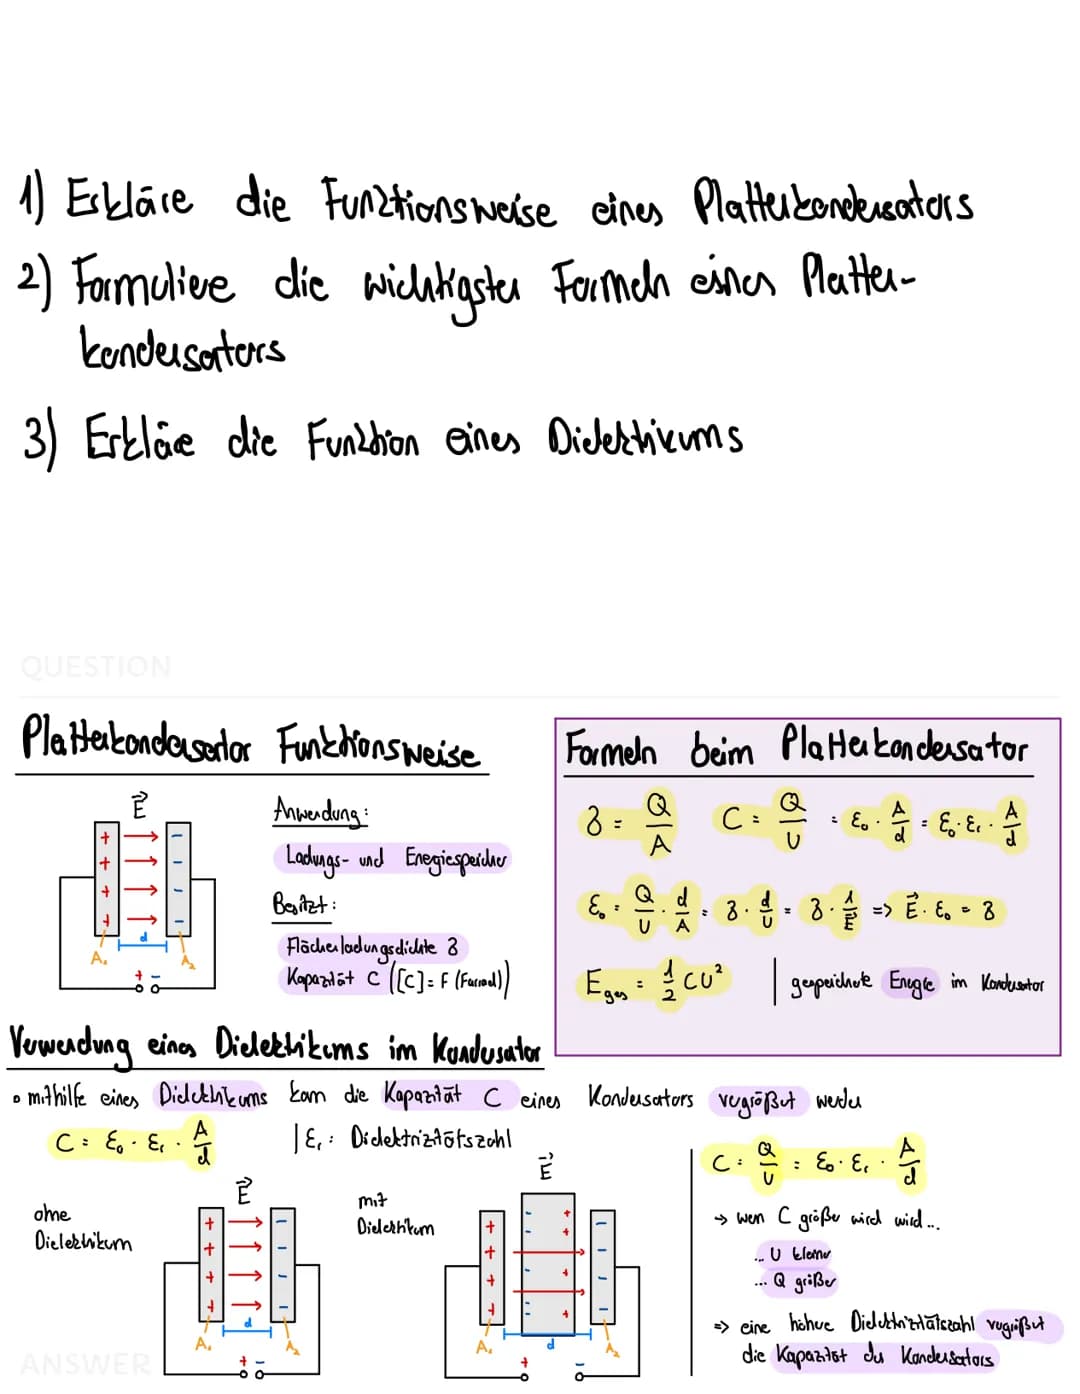 1) Erkläre die Funktionsweise eines Plattenkondensators
2) Formuliere die wichtigsten Formeln eines Platten-
kondensators
3) Erkläre die Funktion eines Dielektrikums
QUESTION
Plattenkondensator Funktionsweise
E⃗
+ −
+ −
+ −
+ −
d
A₁ A₂
+ −
Anwendung:
Ladungs- und Energiespeicher
Besitzt:
Flächenladungsdichte δ
Kapazität C ([C] = F (Farad))
Formeln beim Plattenkondensator
δ = Q/A C = Q/U = ε₀ · A/d = ε₀ · εᵣ · A/d
ε₀ = Q/U · d/A = δ · d/U = δ · 1/E⃗ => E⃗ · ε₀ = δ
E_ges = 1/2 CU² | gespeicherte Energie im Kondensator
Verwendung eines Dielektrikums im Kondensator
• mithilfe eines Dielektrikums kann die Kapazität C eines Kondensators vergrößert werden
C = ε₀ · εᵣ · A/d | εᵣ: Dielektrizitätszahl
ohne
Dielektrikum
E⃗
+ −
+ −
+ −
+ −
d
A₁ A₂
+ −
mit
Dielektrikum
E⃗
+ − + −
+ − + −
+ − + −
+ − + −
d
A₁ A₂
+ −
C = Q/U = ε₀ · εᵣ · A/d
→ wenn C größer wird wird...
... U kleiner
... Q größer
=> eine höhere Dielektrizitätszahl vergrößert
die Kapazität des Kondensators
ANSWER